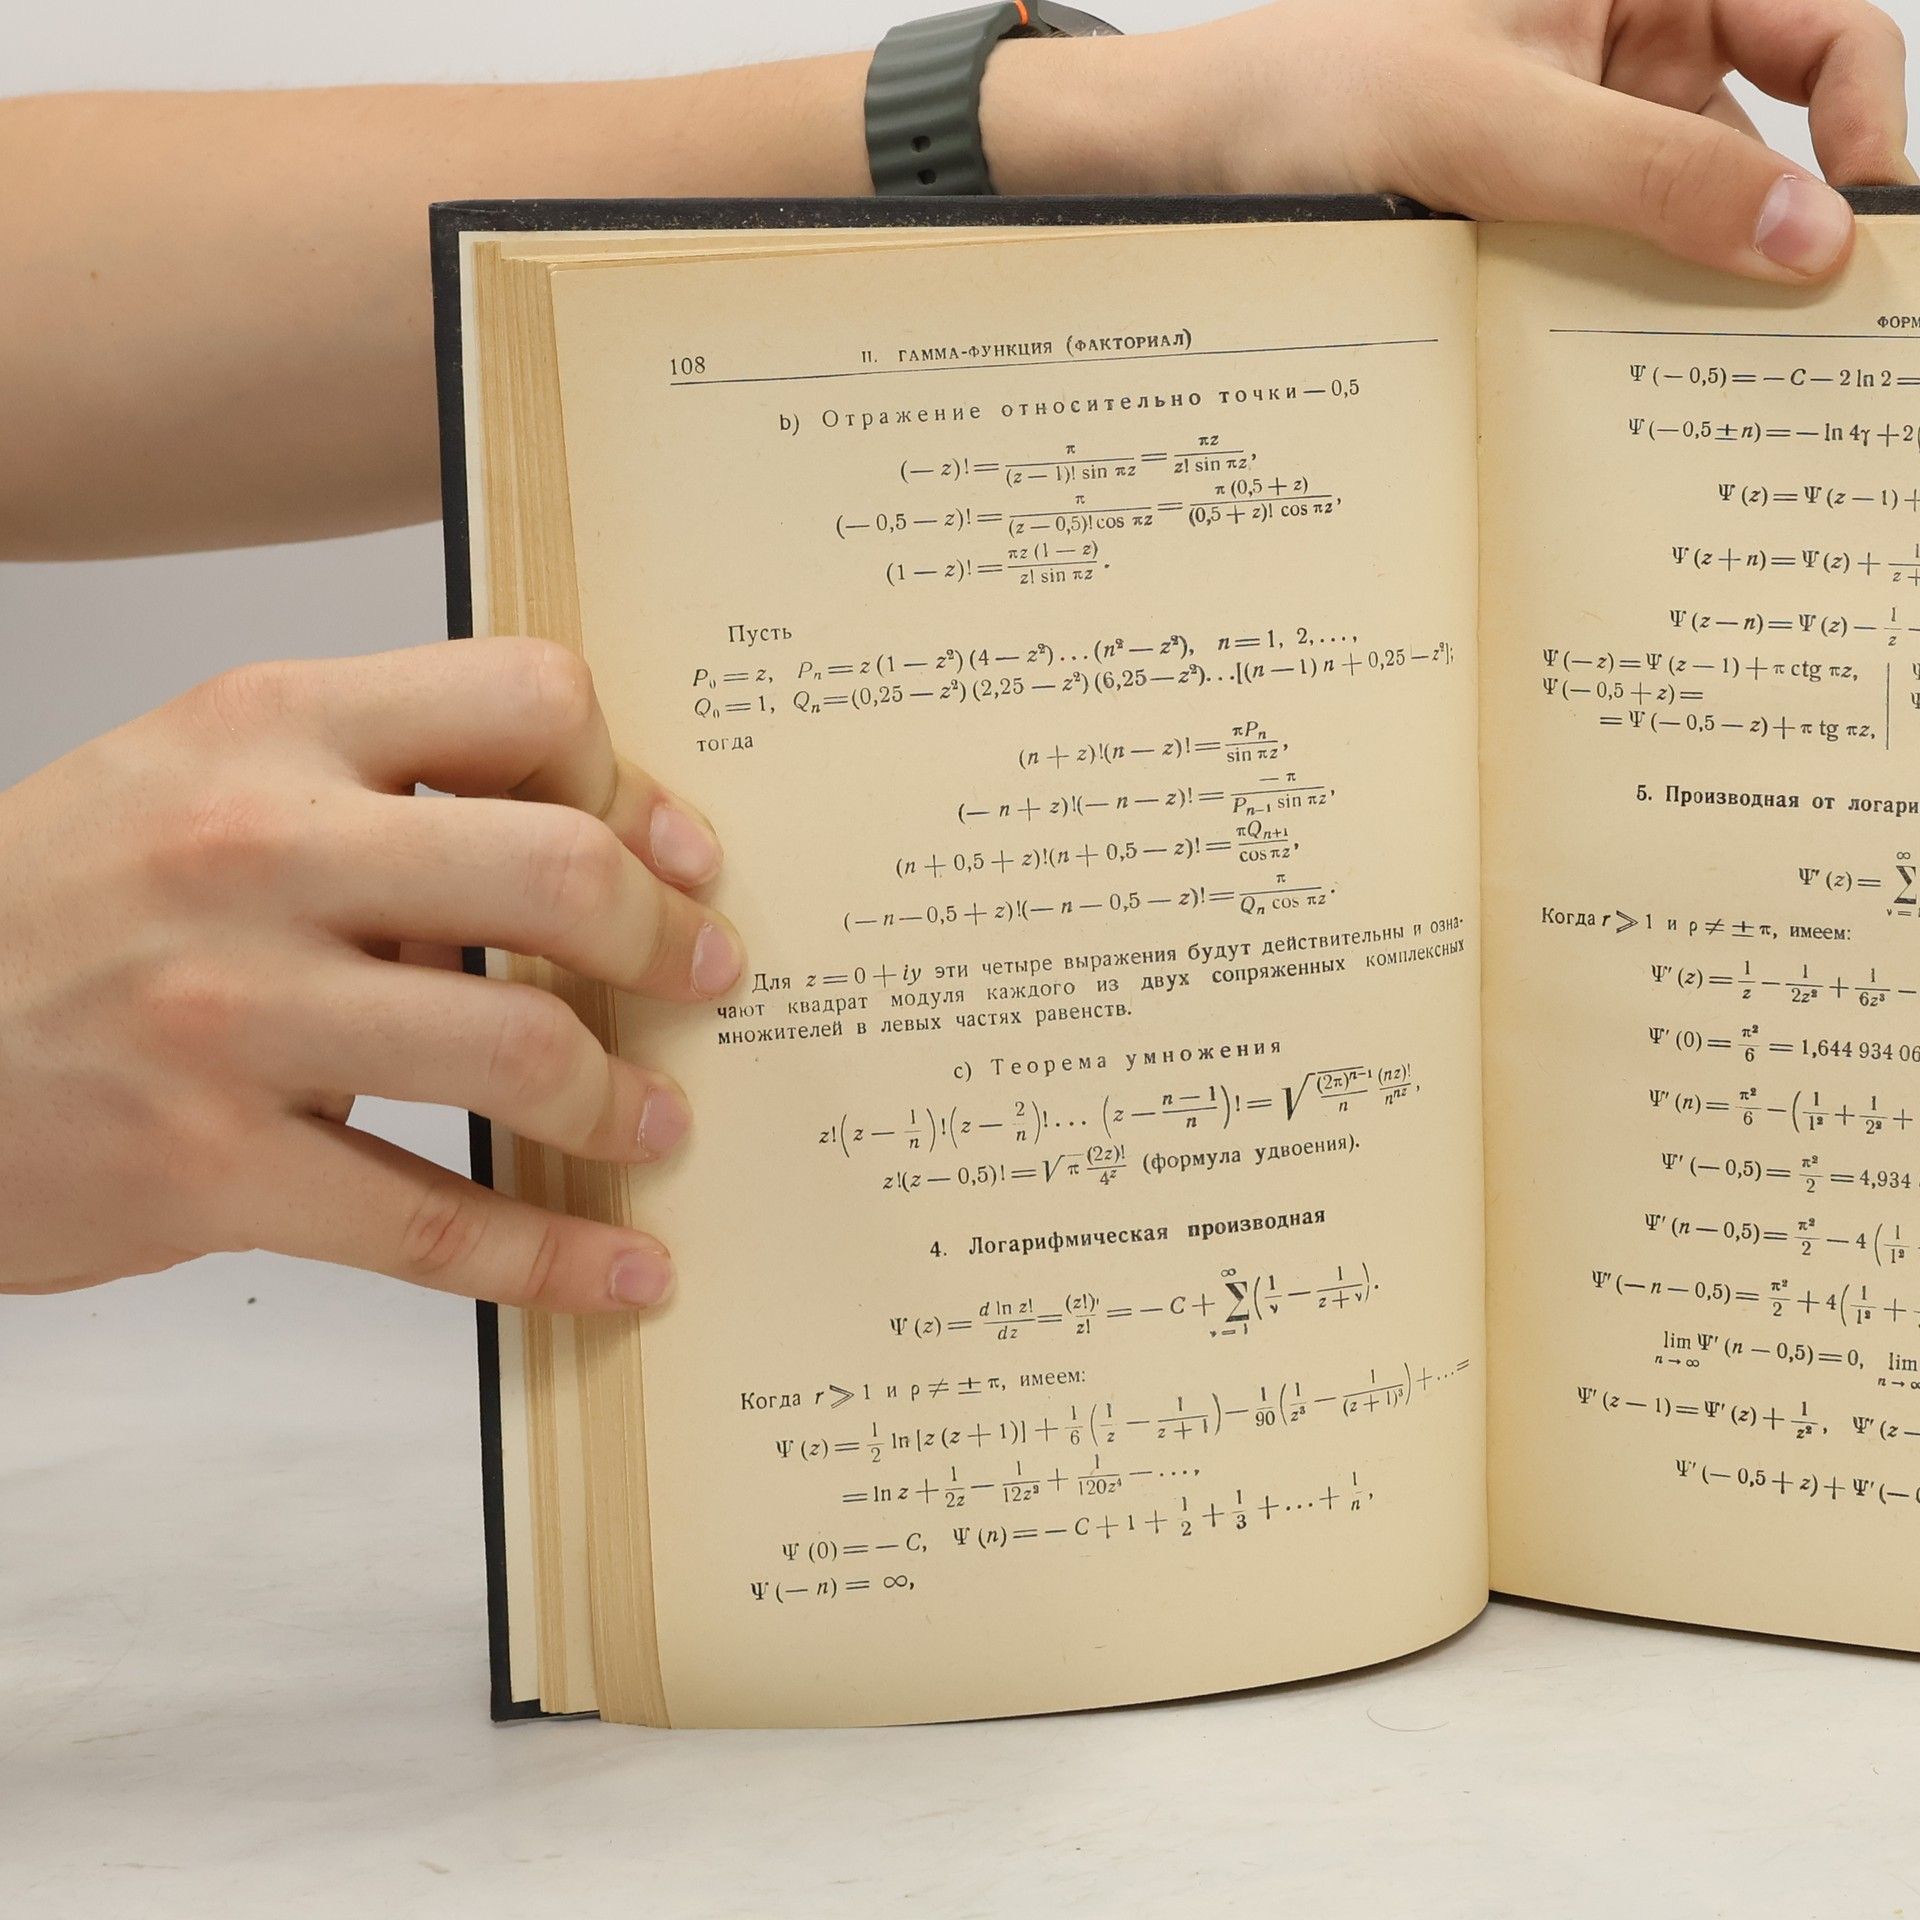 108 II. ГАММА-ФУНКЦИЯ (ФАКТОРИАЛ)
b) Отражение относительно точки — 0,5
(— z)! = π / ((z — 1)! sin πz) = πz / (z! sin πz),
(— 0,5 — z)! = π / ((z — 0,5)! cos πz) = π (0,5 + z) / ((0,5 + z)! cos πz),
(1 — z)! = πz (1 — z) / (z! sin πz).
Пусть
P₀ = z, Pₙ = z (1 — z²) (4 — z²) ... (n² — z²), n = 1, 2, ...,
Q₀ = 1, Qₙ = (0,25 — z²) (2,25 — z²) (6,25 — z²) ... [(n — 1) n + 0,25 — z²];
тогда
(n + z)! (n — z)! = πPₙ / sin πz,
(— n + z)! (— n — z)! = — π / (Pₙ₋₁ sin πz),
(n + 0,5 + z)! (n + 0,5 — z)! = πQₙ₊₁ / cos πz,
(— n — 0,5 + z)! (— n — 0,5 — z)! = π / (Qₙ cos πz).
Для z = 0 + iy эти четыре выражения будут действительны и озна-
чают квадрат модуля каждого из двух сопряженных комплексных
множителей в левых частях равенств.
c) Теорема умножения
z! (z — 1/n)! (z — 2/n)! ... (z — (n — 1)/n)! = √((2π)ⁿ⁻¹ / n) (nz)! / nⁿᶻ,
z! (z — 0,5)! = √π (2z)! / 4ᶻ (формула удвоения).
4. Логарифмическая производная
Ψ (z) = d ln z! / dz = (z!)′ / z! = — C + ∑_{ν = 1}^{∞} (1/ν — 1/(z + ν)).
Когда r ⩾ 1 и ρ ≠ ± π, имеем:
Ψ (z) = 1/2 ln [z (z + 1)] + 1/6 (1/z — 1/(z + 1)) — 1/90 (1/z³ — 1/(z + 1)³) + ... =
= ln z + 1/2z — 1/12z² + 1/120z⁴ — ...,
Ψ (0) = — C, Ψ (n) = — C + 1 + 1/2 + 1/3 + ... + 1/n,
Ψ (— n) = ∞,
Ψ (— 0,5) = — C — 2 ln 2 =
Ψ (— 0,5 ± n) = — ln 4γ + 2
Ψ (z) = Ψ (z — 1) +
Ψ (z + n) = Ψ (z) +
Ψ (z — n) = Ψ (z) — 1/z —
Ψ (— z) = Ψ (z — 1) + π ctg πz,
Ψ (— 0,5 + z) =
= Ψ (— 0,5 — z) + π tg πz,
5. Производная от
Ψ′ (z) = ∑
Когда r ⩾ 1 и ρ ≠ ± π, имеем:
Ψ′ (z) = 1/z — 1/2z² + 1/6z³ —
Ψ′ (0) = π²/6 = 1,644 934 06
Ψ′ (n) = π²/6 — (1/1² + 1/2² +
Ψ′ (— 0,5) = π²/2 = 4,934
Ψ′ (n — 0,5) = π²/2 — 4 (1/1²
Ψ′ (— n — 0,5) = π²/2 + 4 (1/1² +
lim_{n → ∞} Ψ′ (n — 0,5) = 0, lim
Ψ′ (z — 1) = Ψ′ (z) + 1/z², Ψ′ (z —
Ψ′ (— 0,5 + z) + Ψ′ (—